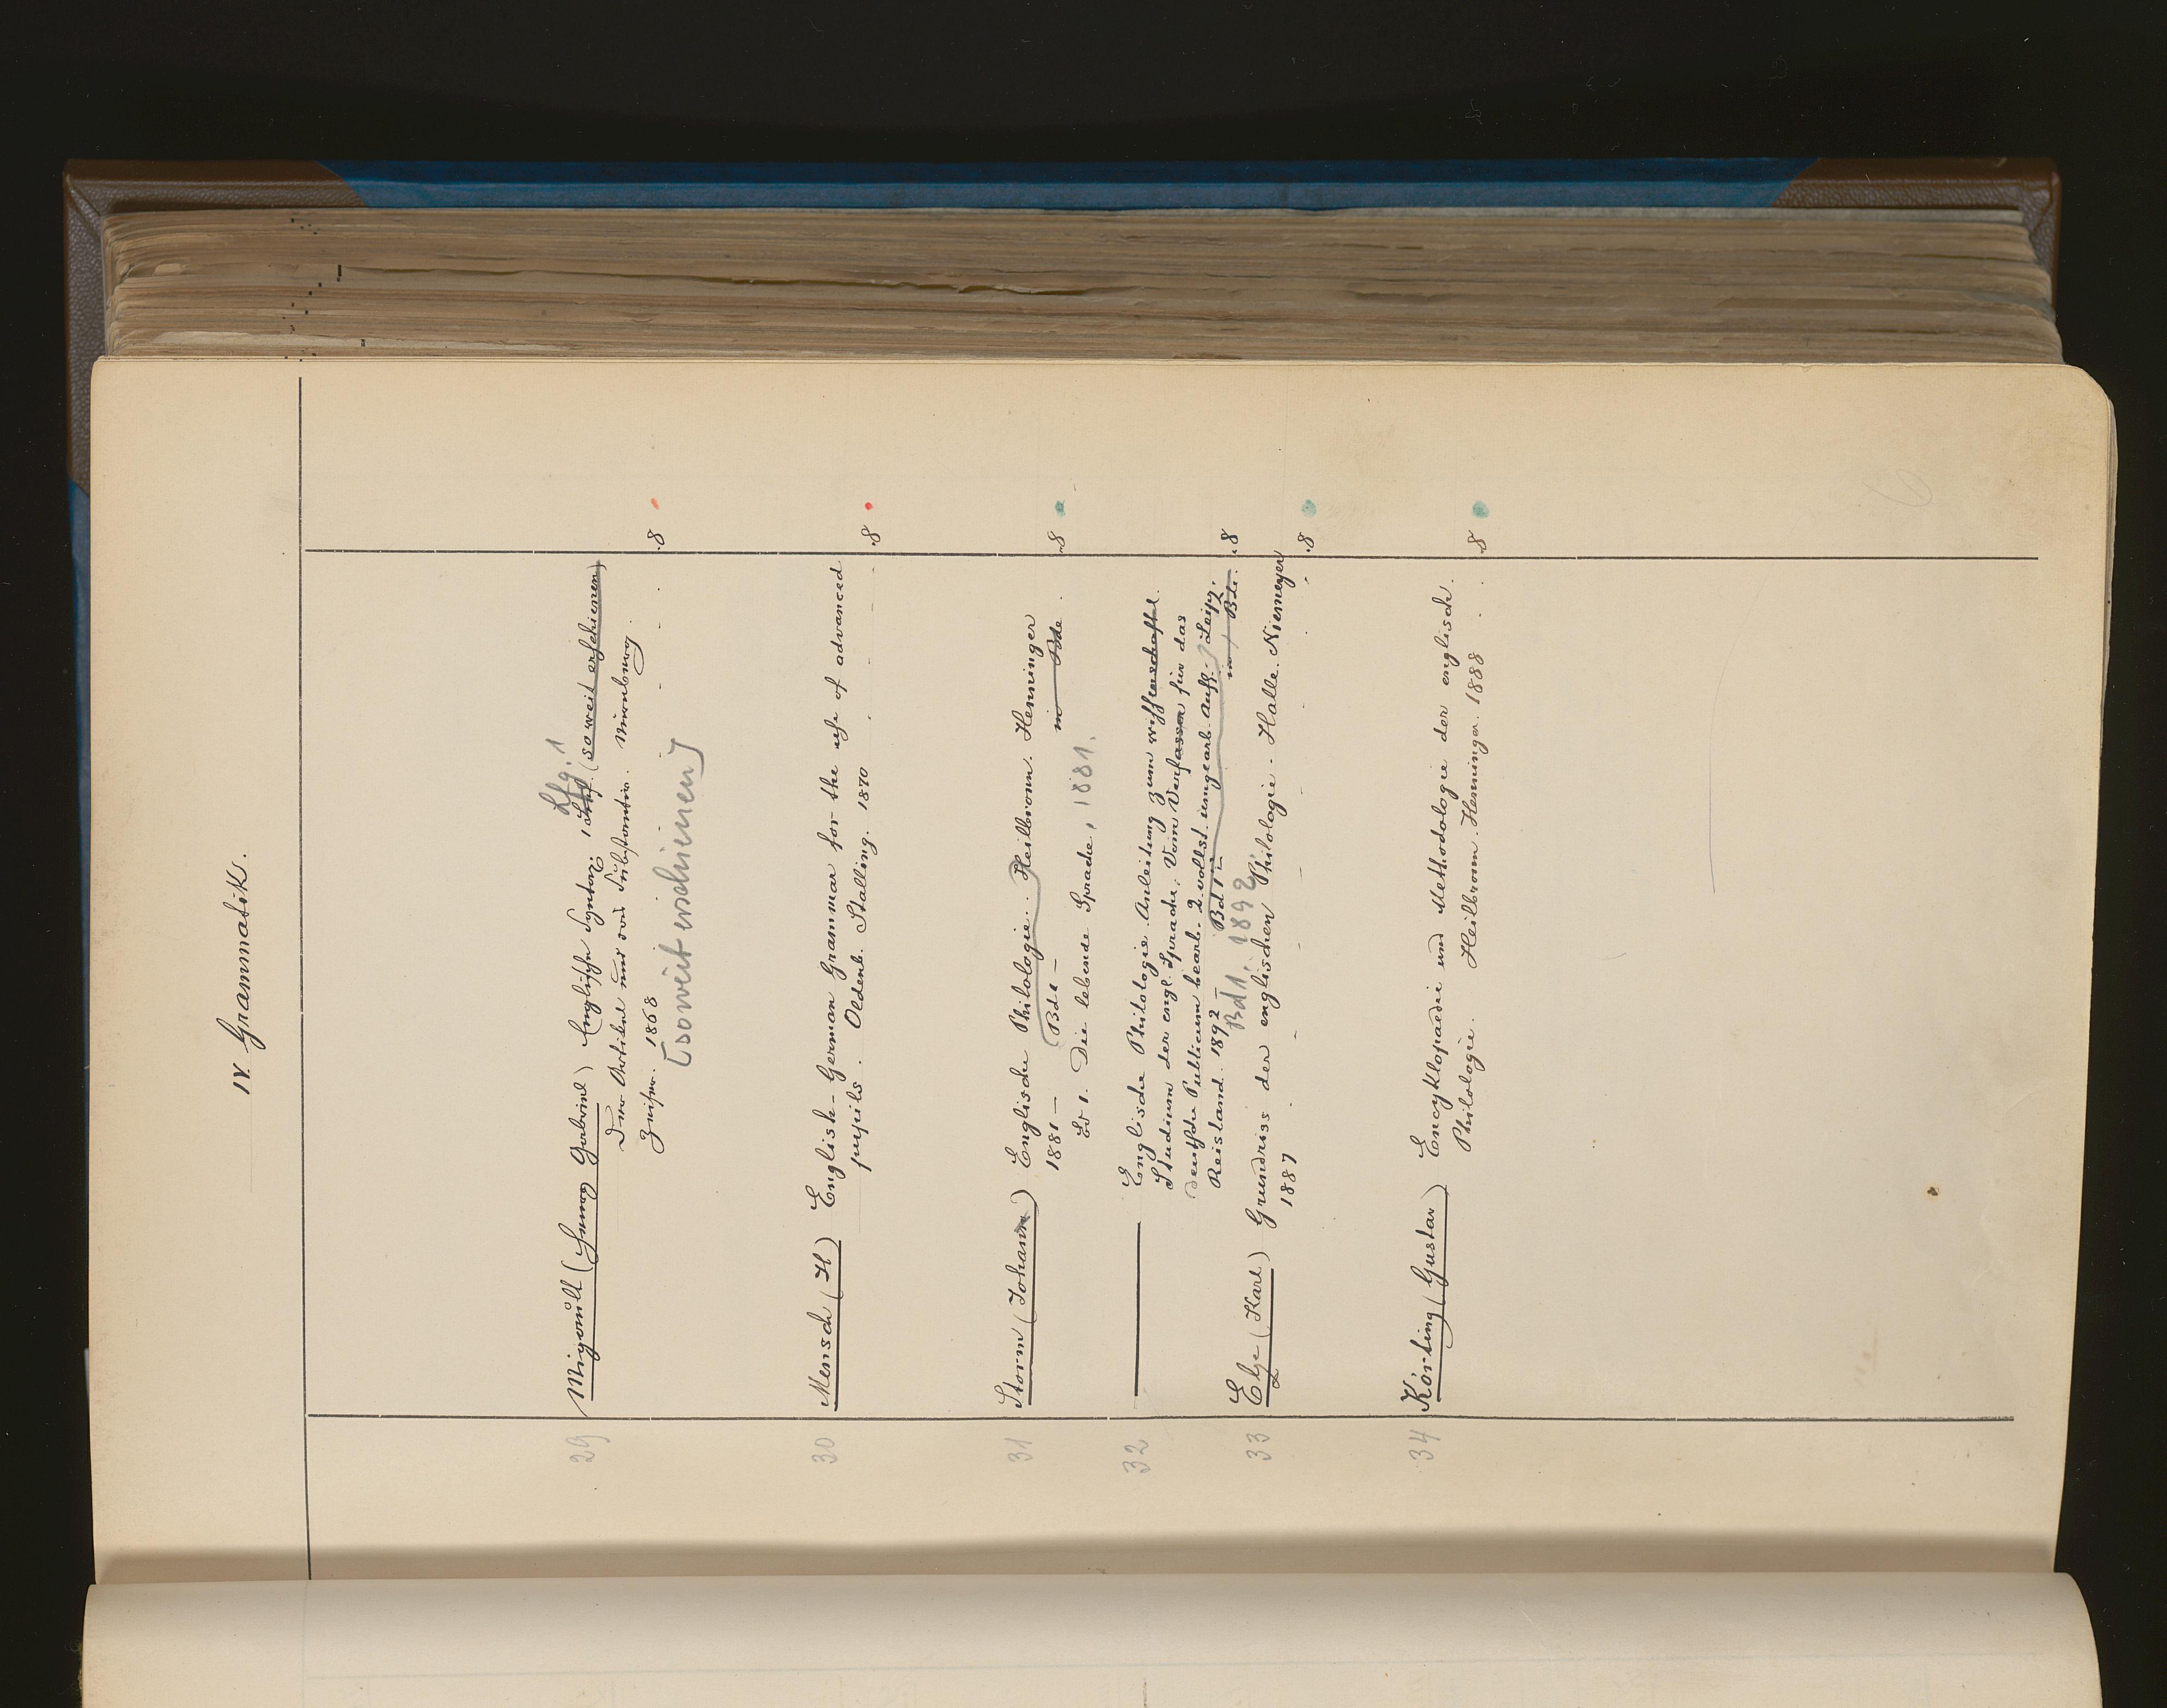 IV. Grammatik.
29 Migault (Henry Gabriel) Englische Syntax. 1 (soweit erschienen)
Lfg. 1
Der Artikel und das Substantiv. Nienburg.
1868 8
[soweit erschienen]
30 Mensch (H) English-German Grammar for the use of advanced
pupils. Oldenb. Stalling. 1870 8
31 Storm (Johann) Englische Philologie. Heilbronn. Henninger
1881 – (Bd 1 – in Bde 8
Bd 1. Die lebende Sprache, 1881.
32 —— Englische Philologie. Anleitung zum wissenschaftl.
Studium der engl. Sprache. Vom Verfasser für das
deutsche Publicum bearb. 2. vollst. umgearb. Aufl. Leipz.
Reisland. 1892 – Bd 1 – in Bde. 8
Bd 1. 1892
33 Elze (Karl) Grundriss der englischen Philologie. Halle. Niemeyer
1887 8
34 Körting (Gustav) Encyklopaedie und Methodologie der englisch.
Philologie. Heilbronn. Henninger. 1888 8
6